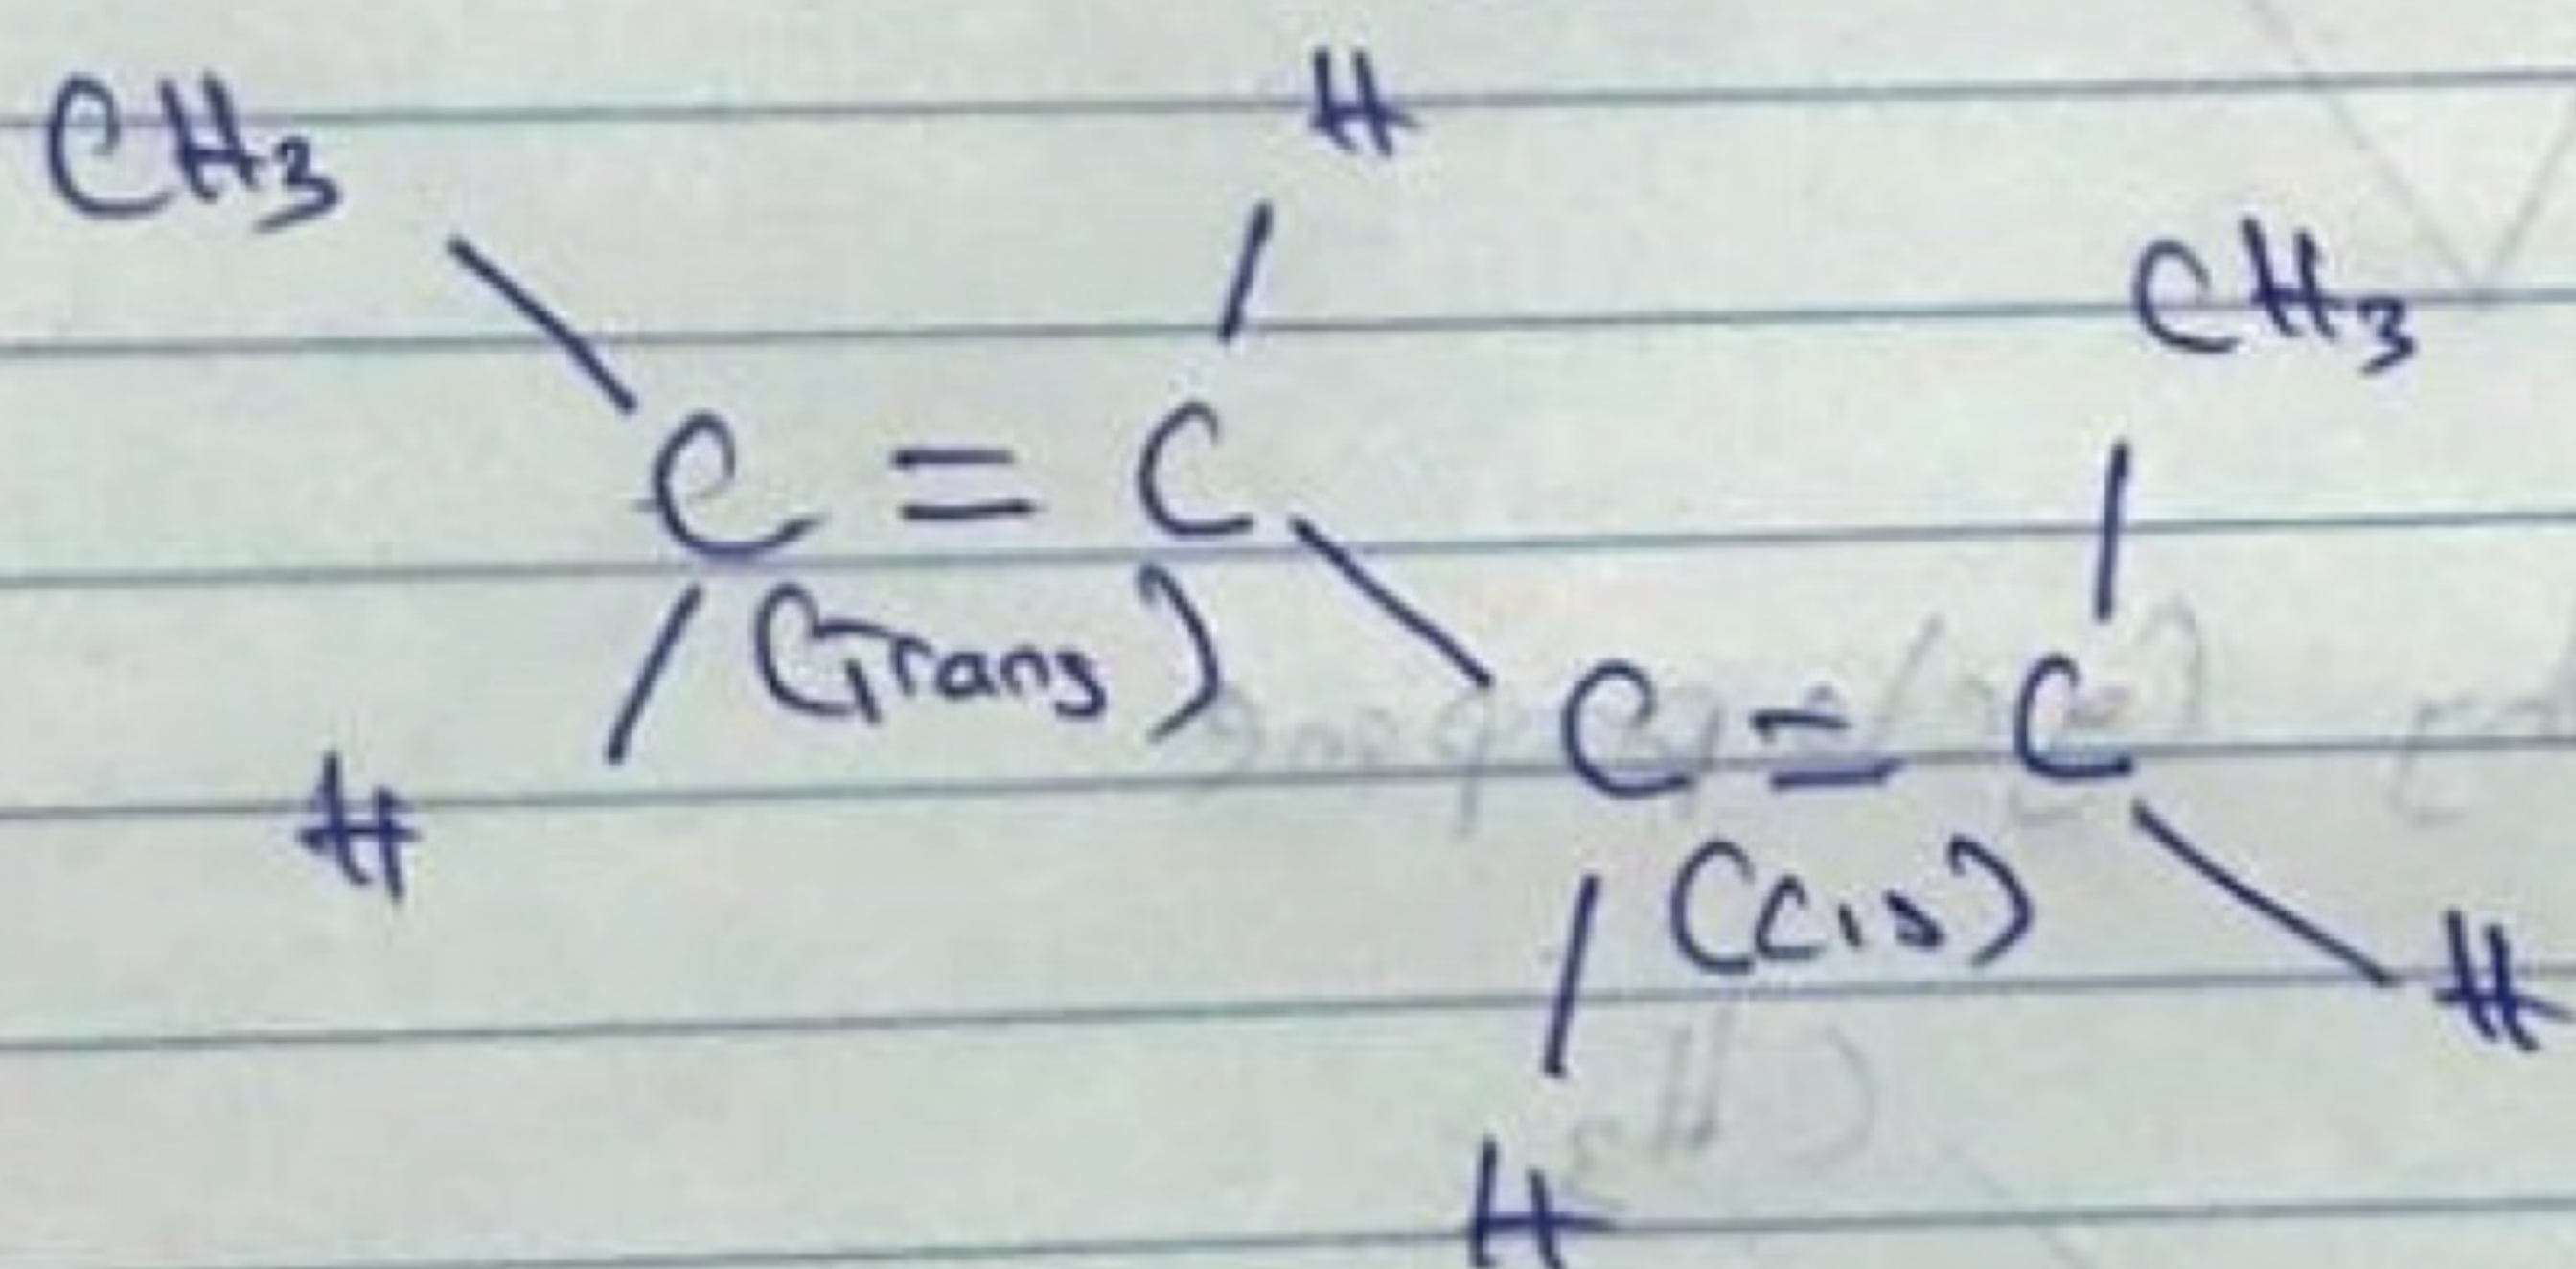 H
CH3
CH3
C = C
(Trans)
C = C
H
(Cis)
H
H